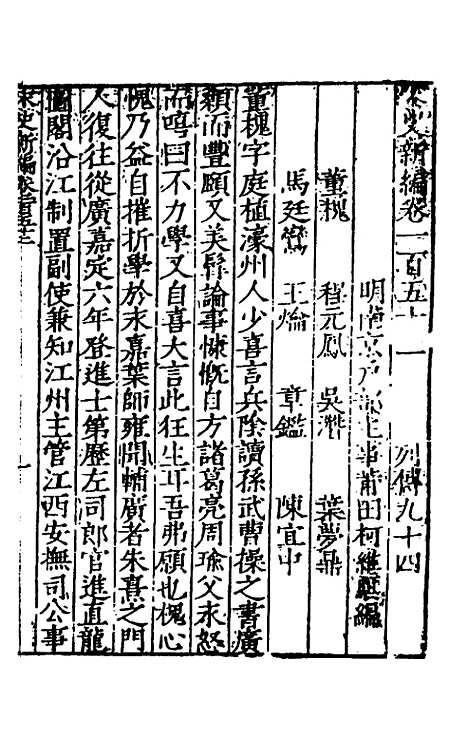 宋史新編卷一百五十一　列傳九十四
明南京戶部主事莆田柯維騏編
董槐　程元鳳　吳潛　葉夢鼎
馬廷鸞　王爚　章鑑　陳宜中
董槐字庭植濠州人少喜言兵陰讀孫武曹操之書廣
顙而豐頤又美髯論事慷慨自方諸葛亮周瑜父永怒
而嘻曰不力學又自喜大言此狂生耳吾弗願也槐心
愧乃益自摧折學於永嘉葉師雍聞輔廣者朱熹之門
人復往從廣嘉定六年登進士第歷左司郎官進直龍
圖閣沿江制置副使兼知江州主管江西安撫司公事
宋史新編卷一百五十一